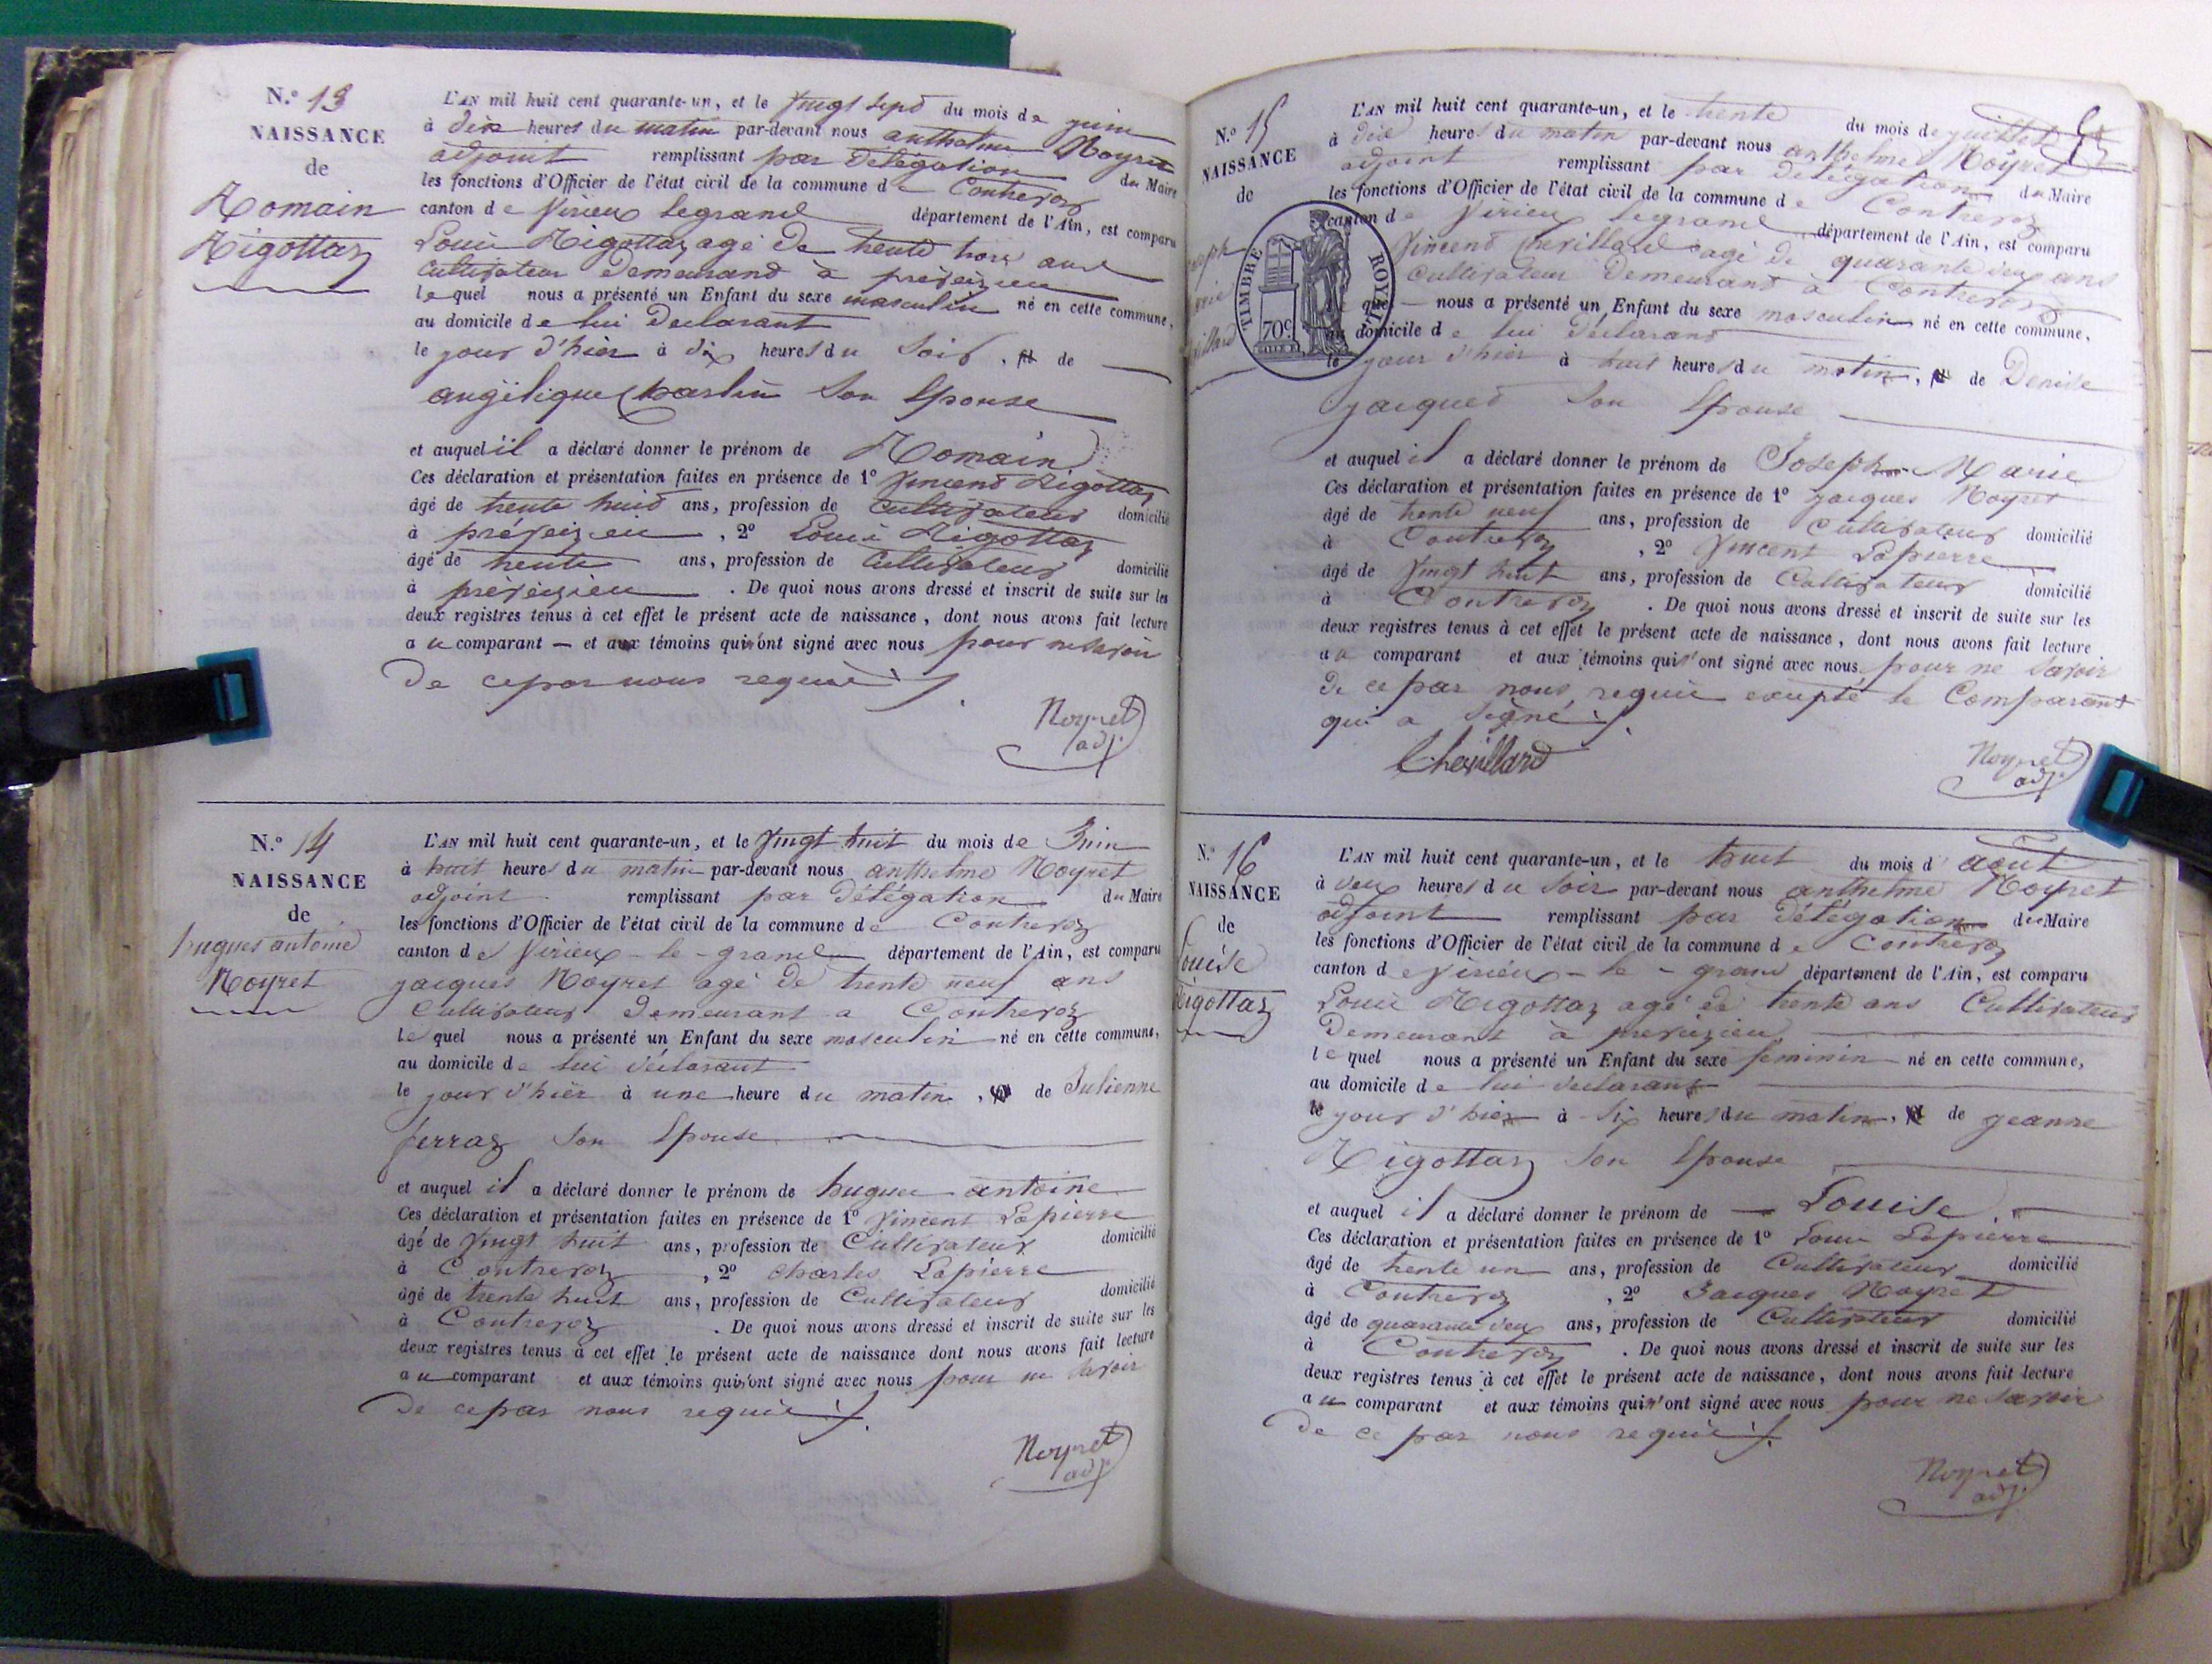 N.º 13
NAISSANCE
de
Romain
Rigottaz
L'AN mil huit cent quarante-un, et le vingt sept du mois de juin
à dix heures du matin par-devant nous anthelme Noyret
adjoint remplissant par délégation du Maire
les fonctions d'Officier de l'état civil de la commune de Contrevoz
canton de Virieu legrand département de l'Ain, est comparu
Louis Rigottaz agé de trente trois ans
cultivateur demeurand à preveizieu
lequel nous a présenté un Enfant du sexe masculin né en cette commune,
au domicile de lui declarant
le jour d'hier à dix heures du soir, de
angélique Charlin son Epouse
et auquel il a déclaré donner le prénom de Romain
Ces déclaration et présentation faites en présence de 1º Vincend Rigottaz
âgé de trente huid ans, profession de cultivateur domicilié
à préveizieu, 2º Louis Rigottaz
âgé de trente ans, profession de cultivateur domicilié
à préveizieu. De quoi nous avons dressé et inscrit de suite sur les
deux registres tenus à cet effet le présent acte de naissance, dont nous avons fait lecture
au comparant – et aux témoins qui n'ont signé avec nous pour ne savoir
de ce par nous requis ./.
Noyret
adj.
N.º 14
NAISSANCE
de
hugues antoine
Noyret
L'AN mil huit cent quarante-un, et le vingt huit du mois de Juin
à huit heures du matin par-devant nous anthelme Noyret
adjoint remplissant par délégation du Maire
les fonctions d'Officier de l'état civil de la commune de Contrevoz
canton de Virieux-le-grand département de l'Ain, est comparu
jacques Noyret agé de trente neuf ans
Cultivateur demeurant a Contrevoz
lequel nous a présenté un Enfant du sexe masculin né en cette commune,
au domicile de lui déclarant
le jour d'hier à une heure du matin, de Julienne
ferraz son Epouse
et auquel il a déclaré donner le prénom de hugues antoine
Ces déclaration et présentation faites en présence de 1º Vincent Lapierre
âgé de vingt huit ans, profession de Cultivateur domicilié
à Contrevoz, 2º charles Lapierre
âgé de trente huit ans, profession de Cultivateur domicilié
à Contrevoz. De quoi nous avons dressé et inscrit de suite sur les
deux registres tenus à cet effet le présent acte de naissance dont nous avons fait lecture
au comparant et aux témoins qui n'ont signé avec nous pour ne savoir
de ce par nous requis ./.
Noyret
adj.
N.º 15
NAISSANCE
de
L'AN mil huit cent quarante-un, et le trente du mois de juillet
à dix heures du matin par-devant nous anthelme Noyret
adjoint remplissant par délégation du Maire
les fonctions d'Officier de l'état civil de la commune de Contrevoz
canton de Virieu legrand département de l'Ain, est comparu
Vincend Chevillard agé de quarante deux ans
Cultivateur demeurand à Contrevoz
quel – nous a présenté un Enfant du sexe masculin né en cette commune,
au domicile de lui déclarand
le jour d'hier à huit heures du matin, de Denise
jacqued son Epouse
et auquel il a déclaré donner le prénom de Joseph Marie
Ces déclaration et présentation faites en présence de 1º jacques Noyret
âgé de trente neuf ans, profession de cultivateur domicilié
à Contrevoz, 2º Vincent Lapierre
âgé de vingt huit ans, profession de Cultivateur domicilié
à Contrevoz. De quoi nous avons dressé et inscrit de suite sur les
deux registres tenus à cet effet le présent acte de naissance, dont nous avons fait lecture
au comparant et aux témoins qui n'ont signé avec nous, pour ne savoir
de ce par nous requis eccepté le Comparant
qui a signé ./.
Chevillard
Noyret
adj.
TIMBRE ROYAL
70c
N.º 16
NAISSANCE
de
Louise
Rigottaz
L'AN mil huit cent quarante-un, et le huit du mois d'août
à deux heures du soir par-devant nous anthelme Noyret
adjoint remplissant par délégation du Maire
les fonctions d'Officier de l'état civil de la commune de Contrevoz
canton de Virieu-le-grand département de l'Ain, est comparu
Louis Rigottaz agé de trente ans Cultivateur
demeurant à preveizieu
lequel nous a présenté un Enfant du sexe feminin né en cette commune,
au domicile de lui declarant
le jour d'hier à six heures du matin, de jeanne
Rigottaz son Epouse
et auquel il a déclaré donner le prénom de Louise.
Ces déclaration et présentation faites en présence de 1º Louis Lapierre
âgé de trente un ans, profession de Cultivateur domicilié
à Contrevoz, 2º Jacques Noyret
âgé de quarante deux ans, profession de Cultivateur domicilié
à Contrevoz. De quoi nous avons dressé et inscrit de suite sur les
deux registres tenus à cet effet le présent acte de naissance, dont nous avons fait lecture
au comparant et aux témoins qui n'ont signé avec nous pour ne savoir
de ce par nous requis ./.
Noyret
adj.